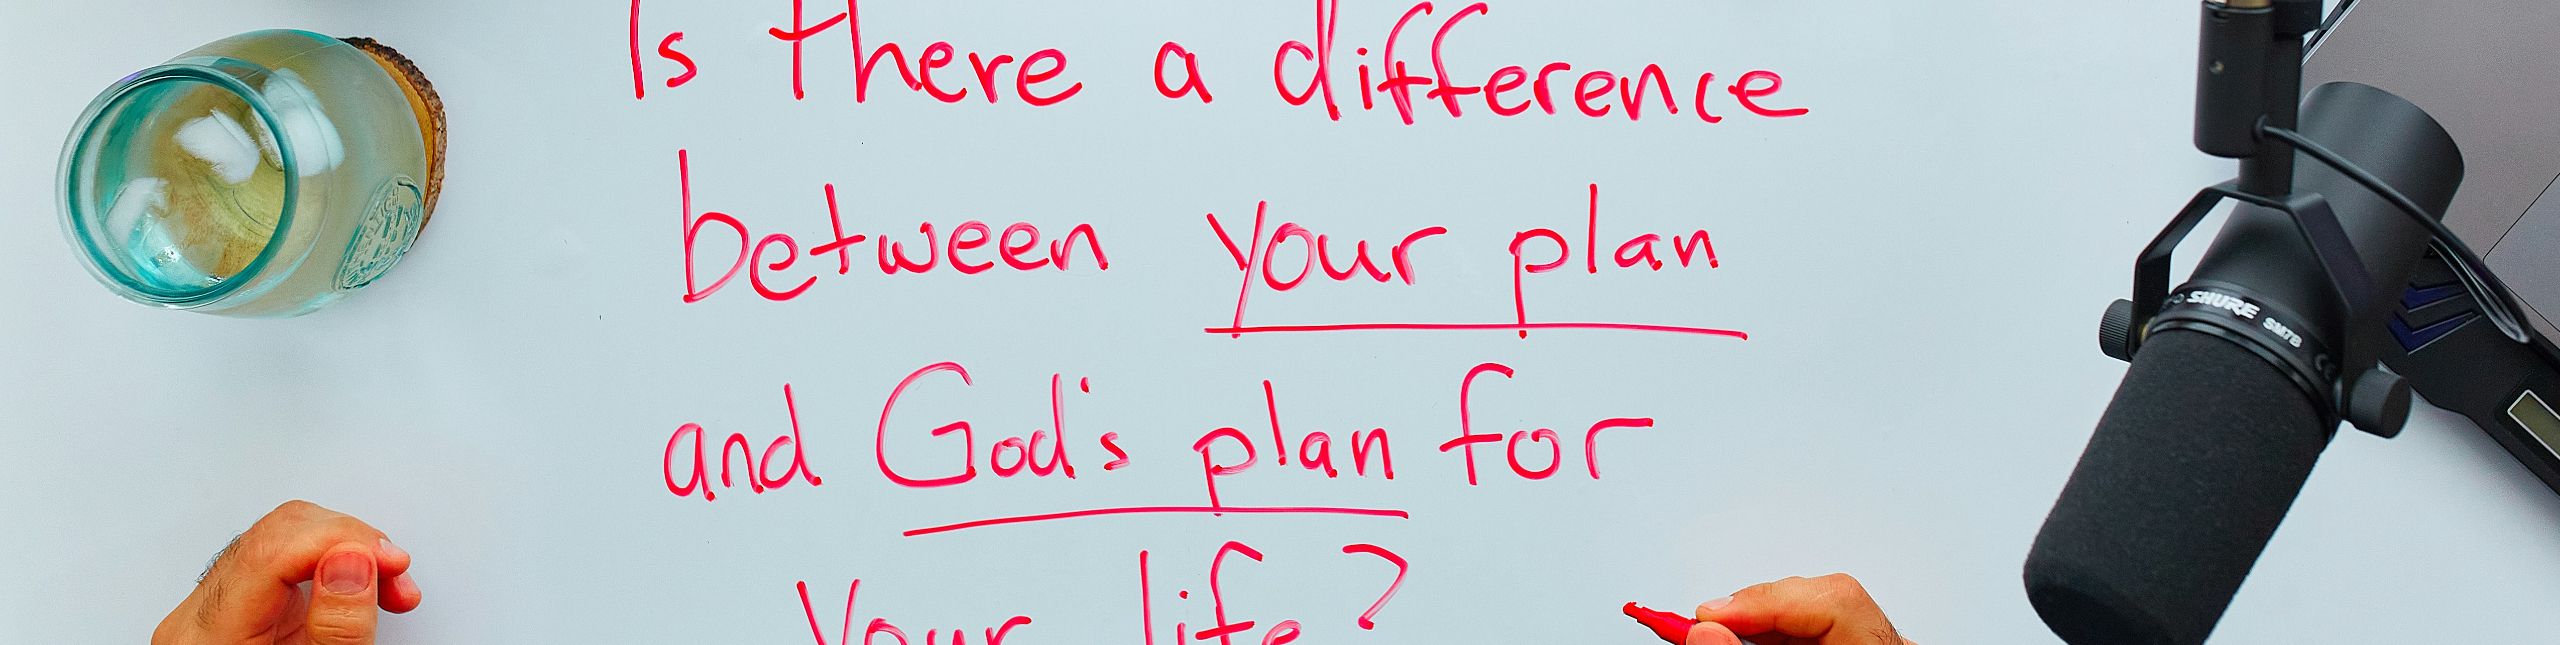 Is there a difference
between your plan
and God's plan for
your life?
SHURE SM7B